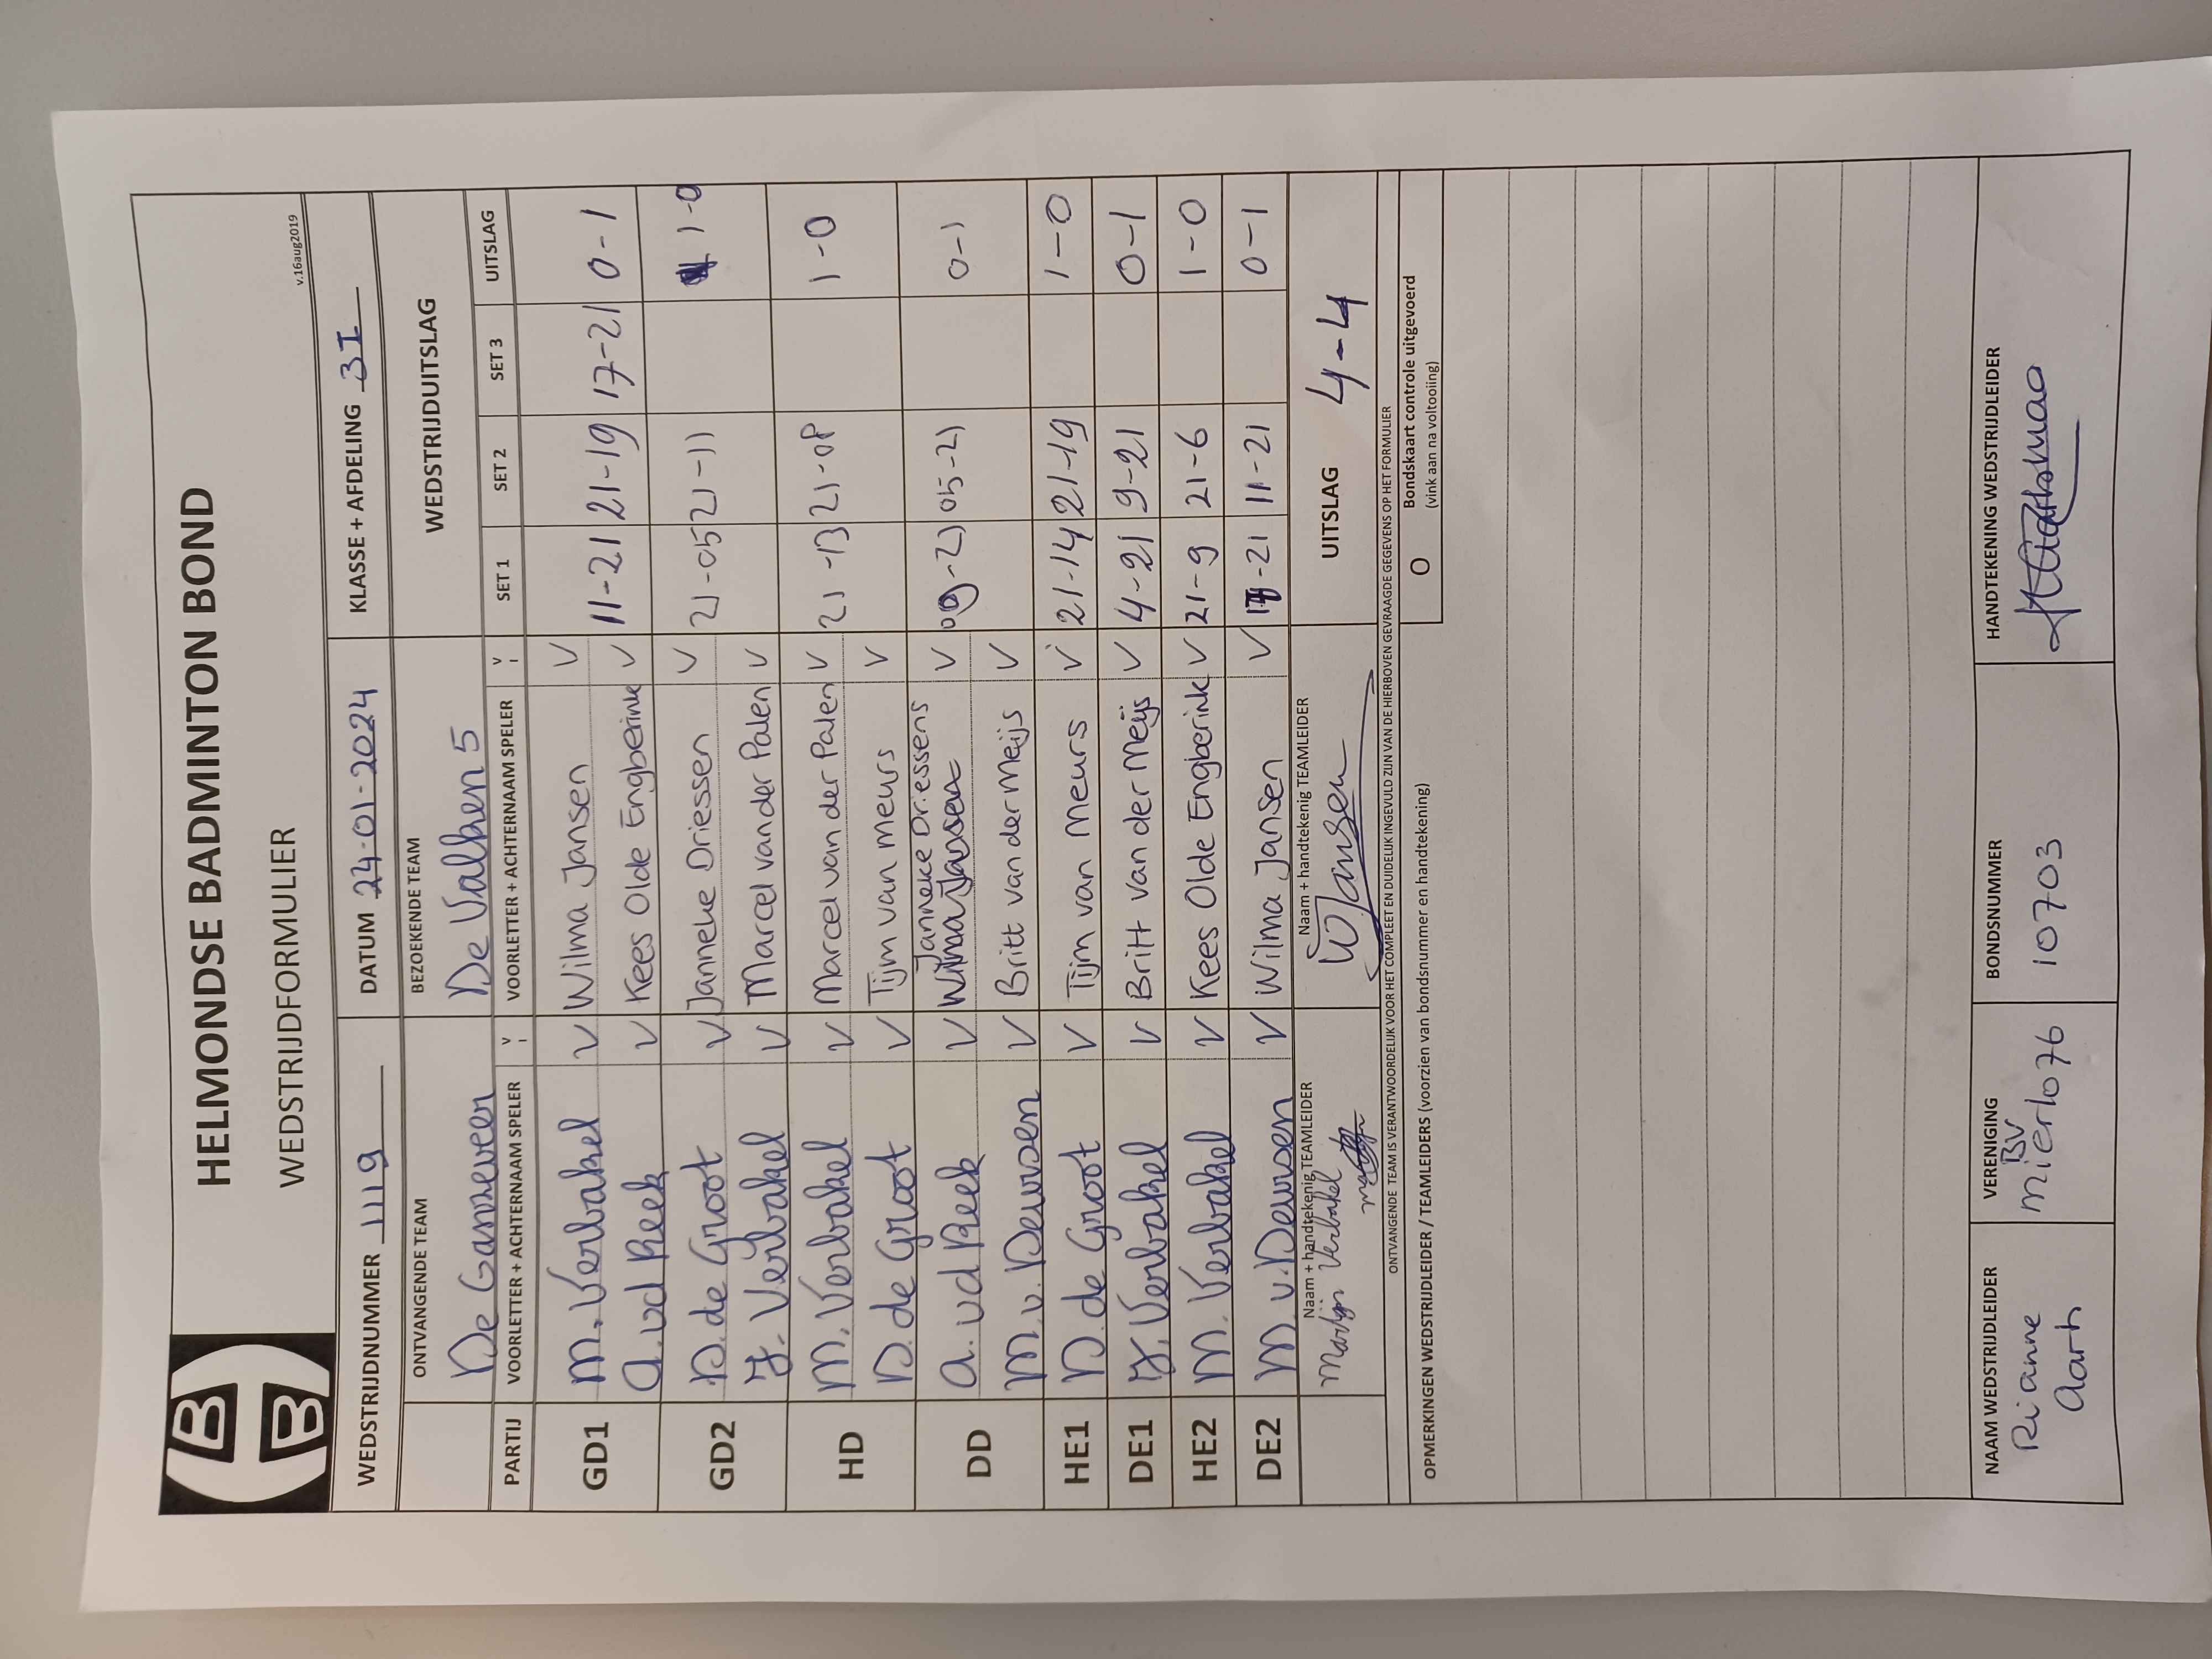 HELMONDSE BADMINTON BOND
WEDSTRIJDFORMULIER
v.16aug2019
WEDSTRIJDNUMMER 1119 DATUM 24-01-2024 KLASSE + AFDELING 3I
ONTVANGENDE TEAM BEZOEKENDE TEAM WEDSTRIJDUITSLAG
De Ganzeveer De Valken 5
PARTIJ VOORLETTER + ACHTERNAAM SPELER V VOORLETTER + ACHTERNAAM SPELER V SET 1 SET 2 SET 3 UITSLAG
GD1 M. Verbakel V Wilma Jansen V 11-21 21-19 17-21 0-1
A. vd Beek V Kees Olde Engberink V
GD2 D. de Groot V Janneke Driessen V 21-05 21-11 1-0
J. Verbakel V Marcel van der Palen V
HD M. Verbakel V Marcel van der Palen V 21-13 21-08 1-0
D. de Groot V Tijm van Meurs V
DD A. vd Beek V Janneke Driessens V 09-21 05-21 0-1
Wilma Jansen
M. v. Deursen V Britt van der Meijs V
HE1 D. de Groot V Tijm van Meurs V 21-14 21-19 1-0
DE1 J. Verbakel V Britt van der Meijs V 4-21 9-21 0-1
HE2 M. Verbakel V Kees Olde Engberink V 21-9 21-6 1-0
DE2 M. v. Deursen V Wilma Jansen V 17-21 11-21 0-1
Naam + handtekenig TEAMLEIDER Naam + handtekenig TEAMLEIDER UITSLAG 4-4
Martijn Verbakel WJansen
ONTVANGENDE TEAM IS VERANTWOORDELIJK VOOR HET COMPLEET EN DUIDELIJK INGEVULD ZIJN VAN DE HIERBOVEN GEVRAAGDE GEGEVENS OP HET FORMULIER
OPMERKINGEN WEDSTRIJDLEIDER / TEAMLEIDERS (voorzien van bondsnummer en handtekening) O Bondskaart controle uitgevoerd
(vink aan na voltooiing)
NAAM WEDSTRIJDLEIDER VERENIGING BONDSNUMMER HANDTEKENING WEDSTRIJDLEIDER
Rianne BV 10703
Aarts Mierlo 76